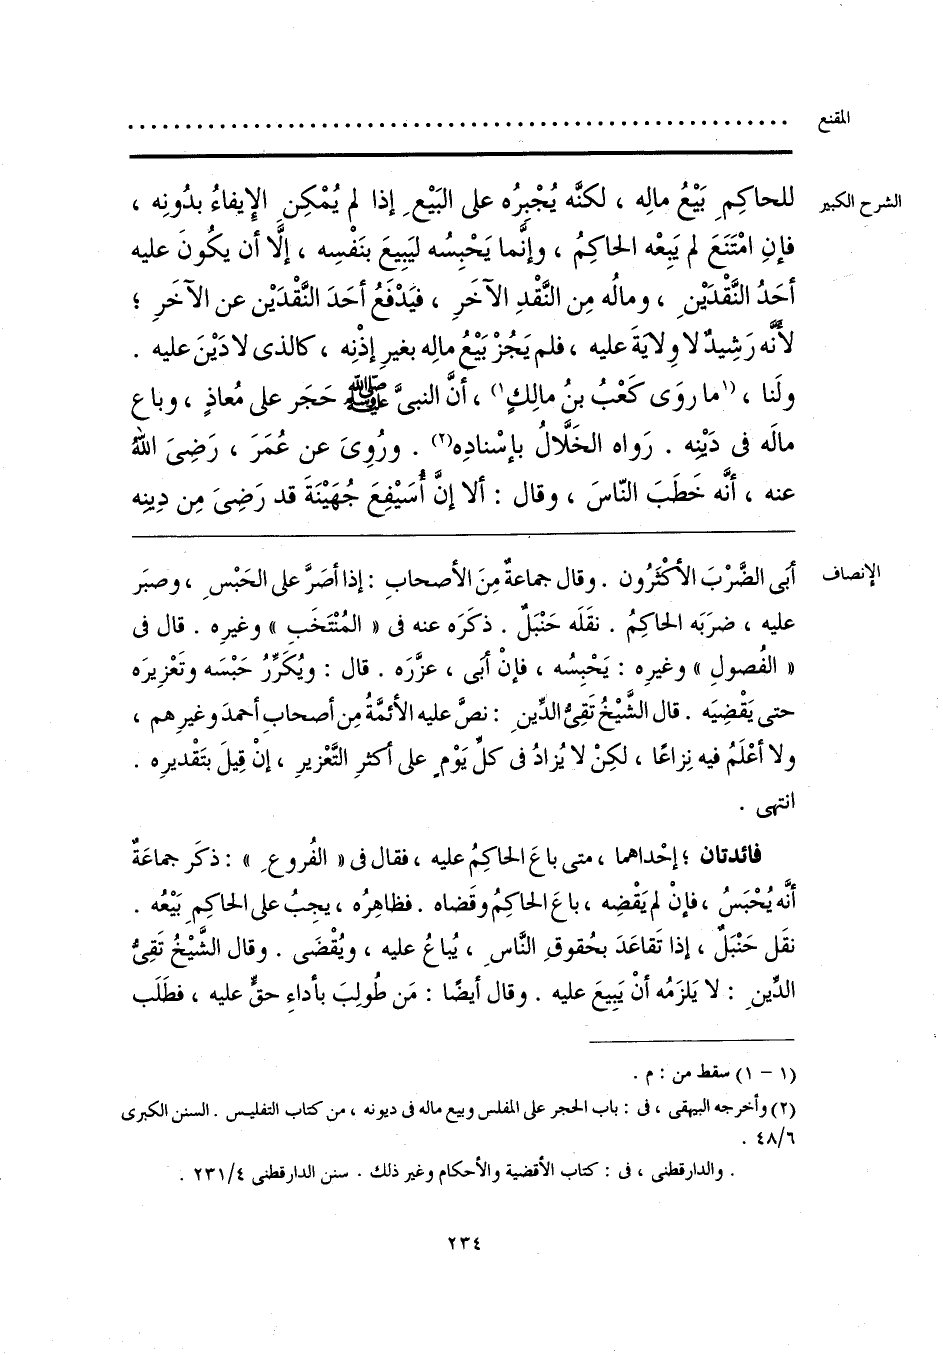 المقنع ............................................................
الشرح الكبير للحاكِمِ بَيْعُ مالِه ، لكنَّه يُجْبِرُه على البَيْعِ إذا لم يُمْكِنِ الإِيفاءُ بدُونِه ،
فإنِ امْتَنَعَ لم يَبِعْه الحاكِمُ ، وإنَّما يَحْبِسُه ليَبِيعَ بنَفْسِه ، إلَّا أن يكُونَ عليه
أحَدُ النَّقْدَيْنِ ، ومالُه مِن النَّقْدِ الآخَرِ ، فيَدْفَعُ أحَدَ النَّقْدَيْن عن الآخَرِ ؛
لأنَّه رَشِيدٌ لا وِلايَةَ عليه ، فلم يَجُزْ بَيْعُ مالِه بغيرِ إذْنِه ، كالذى لا دَيْنَ عليه .
ولَنا ، (١ما روَى كَعْبُ بنُ مالِكٍ١) ، أنَّ النبىَّ ﷺ حَجَر على مُعاذٍ ، وباع
مالَه فى دَيْنِه . رَواه الخَلَّالُ بإسْنادِه(٢) . ورُوِىَ عن عُمَرَ ، رَضِىَ اللهُ
عنه ، أنَّه خَطَبَ النّاسَ ، وقال : ألا إنَّ أُسَيْفِعَ جُهَيْنَةَ قد رَضِىَ مِن دِينِه
الإنصاف أبَى الضَّرْبَ الأكْثَرُون . وقال جماعةٌ مِنَ الأصحابِ : إذا أصَرَّ على الحَبْسِ ، وصبَر
عليه ، ضرَبَه الحاكِمُ . نقَلَه حَنْبَلٌ . ذكَرَه عنه فى « المُنْتَخَبِ » وغيرِه . قال فى
« الفُصولِ » وغيرِه : يَحْبِسُه ، فإنْ أبَى ، عزَّرَه . قال : ويُكَرِّرُ حَبْسَه وتَعْزِيرَه
حتى يَقْضِيَه . قال الشَّيْخُ تَقِىُّ الدِّينِ : نصَّ عليه الأئمَّةُ مِن أصحابِ أحمدَ وغيرِهم ،
ولا أعْلَمُ فيه نِزاعًا ، لكِنْ لا يُزادُ فى كلِّ يَوْمٍ على أكثرِ التَّعْزيرِ ، إنْ قِيلَ بتَقْديرِه .
انتهى .
فائدتان ؛ إحْداهما ، متى باعَ الحاكِمُ عليه ، فقال فى « الفُروعِ » : ذكَر جماعَةٌ
أنَّه يُحْبَسُ ، فإنْ لم يَقْضِه ، باعَ الحاكِمُ وقَضاه . فظاهِرُه ، يجِبُ على الحاكمِ بَيْعُه .
نقَل حَنْبَلٌ ، إذا تَقاعَدَ بحُقوقِ النَّاسِ ، يُباعُ عليه ، ويُقْضَى . وقال الشَّيْخُ تَقِىُّ
الدِّينِ : لا يَلزَمُه أنْ يَبِيعَ عليه . وقال أيضًا : مَن طُولِبَ بأداءِ حقٍّ عليه ، فطَلَب
(١ - ١) سقط من : م .
(٢) وأخرجه البيهقى ، فى : باب الحجر على المفلس وبيع ماله فى ديونه ، من كتاب التفليس . السنن الكبرى
٤٨/٦ .
. والدارقطنى ، فى : كتاب الأقضية والأحكام وغير ذلك . سنن الدارقطنى ٢٣١/٤ .
٢٣٤